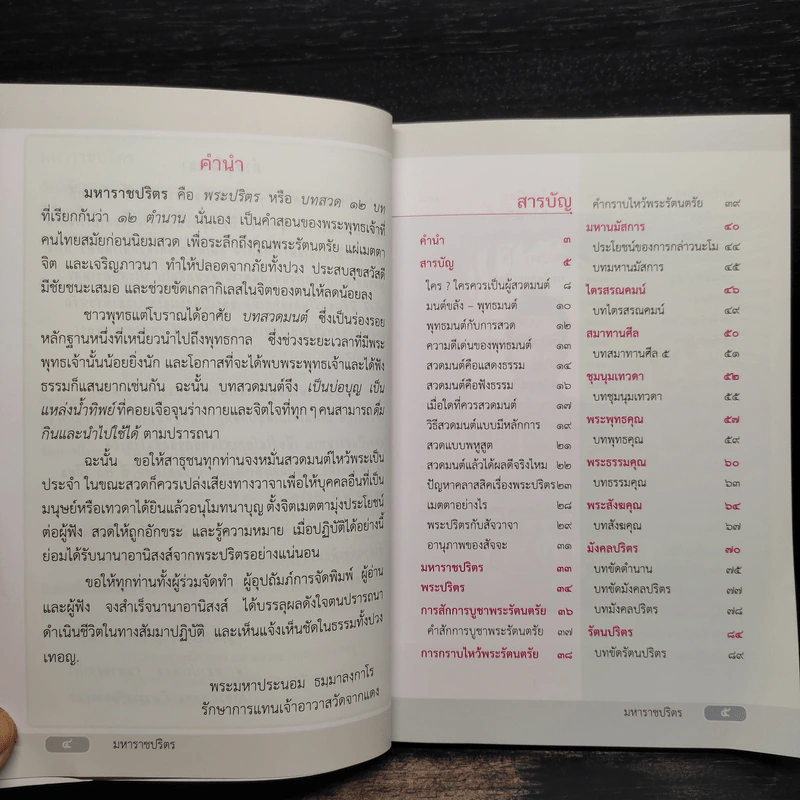 คำนำ
มหาราชปริตร คือ พระปริตร หรือ บทสวด ๑๒ บท
ที่เรียกกันว่า ๑๒ ตำนาน นั่นเอง เป็นคำสอนของพระพุทธเจ้าที่
คนไทยสมัยก่อนนิยมสวด เพื่อระลึกถึงคุณพระรัตนตรัย แผ่เมตตา
จิต และเจริญภาวนา ทำให้ปลอดจากภัยทั้งปวง ประสบสุขสวัสดี
มีชัยชนะเสมอ และช่วยขัดเกลากิเลสในจิตของตนให้ลดน้อยลง
ชาวพุทธแต่โบราณได้อาศัย บทสวดมนต์ ซึ่งเป็นร่องรอย
หลักฐานหนึ่งที่เหนี่ยวนำไปถึงพุทธกาล ซึ่งช่วงระยะเวลาที่มีพระ
พุทธเจ้านั้นน้อยยิ่งนัก และโอกาสที่จะได้พบพระพุทธเจ้าและได้ฟัง
ธรรมก็แสนยากเช่นกัน ฉะนั้น บทสวดมนต์จึง เป็นบ่อบุญ เป็น
แหล่งน้ำทิพย์ ที่คอยเจือจุนร่างกายและจิตใจที่ทุก ๆ คนสามารถ ดื่ม
กินและนำไปใช้ได้ ตามปรารถนา
ฉะนั้น ขอให้สาธุชนทุกท่านจงหมั่นสวดมนต์ไหว้พระเป็น
ประจำ ในขณะสวดก็ควรเปล่งเสียงทางวาจาเพื่อให้บุคคลอื่นที่เป็น
มนุษย์หรือเทวดาได้ยินแล้วอนุโมทนาบุญ ตั้งจิตเมตตามุ่งประโยชน์
ต่อผู้ฟัง สวดให้ถูกอักขระ และรู้ความหมาย เมื่อปฏิบัติได้อย่างนี้
ย่อมได้รับนานาอานิสงส์จากพระปริตรอย่างแน่นอน
ขอให้ทุกท่านทั้งผู้ร่วมจัดทำ ผู้อุปถัมภ์การจัดพิมพ์ ผู้อ่าน
และผู้ฟัง จงสำเร็จนานาอานิสงส์ ได้บรรลุผลดังใจตนปรารถนา
ดำเนินชีวิตในทางสัมมาปฏิบัติ และเห็นแจ้งเห็นชัดในธรรมทั้งปวง
เทอญ.
พระมหาประนอม ธมฺมาลงฺกาโร
รักษาการแทนเจ้าอาวาสวัดจากแดง
๔ มหาราชปริตร
สารบัญ
คำนำ ๓
สารบัญ ๕
ใคร ? ใครควรเป็นผู้สวดมนต์ ๘
มนต์ขลัง – พุทธมนต์ ๑๐
พุทธมนต์กับการสวด ๑๒
ความดีเด่นของพุทธมนต์ ๑๓
สวดมนต์คือแสดงธรรม ๑๔
สวดมนต์คือฟังธรรม ๑๖
เมื่อใดที่ควรสวดมนต์ ๑๗
วิธีสวดมนต์แบบมีหลักการ ๑๙
สวดแบบพหูสูต ๒๑
สวดมนต์แล้วได้ผลดีจริงไหม ๒๒
ปัญหาคลาสสิคเรื่องพระปริตร ๒๓
เมตตาอย่างไร ๒๘
พระปริตรกับสัจวาจา ๒๙
อานุภาพของสัจจะ ๓๑
มหาราชปริตร ๓๓
พระปริตร ๓๔
การสักการบูชาพระรัตนตรัย ๓๖
คำสักการบูชาพระรัตนตรัย ๓๗
การกราบไหว้พระรัตนตรัย ๓๘
คำกราบไหว้พระรัตนตรัย ๓๙
มหานมัสการ ๔๐
ประโยชน์ของการกล่าวนะโม ๔๔
บทมหานมัสการ ๔๕
ไตรสรณคมน์ ๔๖
บทไตรสรณคมน์ ๔๙
สมาทานศีล ๕๐
บทสมาทานศีล ๕ ๕๑
ชุมนุมเทวดา ๕๒
บทชุมนุมเทวดา ๕๕
พระพุทธคุณ ๕๗
บทพุทธคุณ ๕๙
พระธรรมคุณ ๖๐
บทธรรมคุณ ๖๓
พระสังฆคุณ ๖๔
บทสังฆคุณ ๖๗
มังคลปริตร ๗๐
บทขัดตำนาน ๗๕
บทขัดมังคลปริตร ๗๗
บทมังคลปริตร ๗๘
รัตนปริตร ๘๔
บทขัดรัตนปริตร ๘๙
มหาราชปริตร ๕